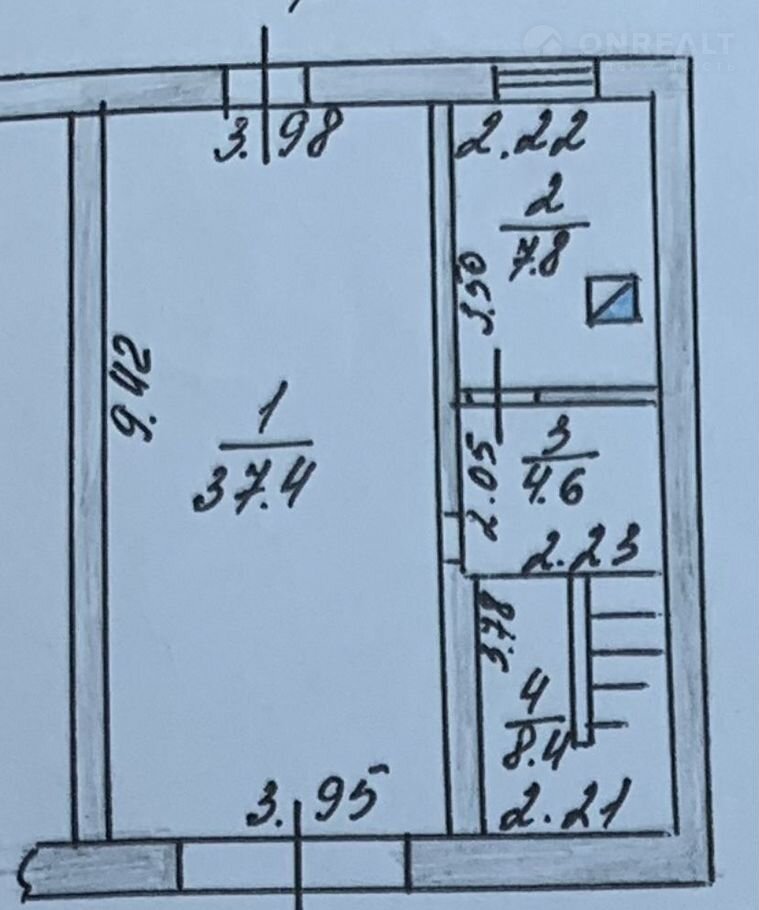 ONREALT
3.98
2.22
2
7.8
3.50
9.42
1
37.4
3
4.6
2.05
2.23
3.78
4
8.4
3.95
2.21